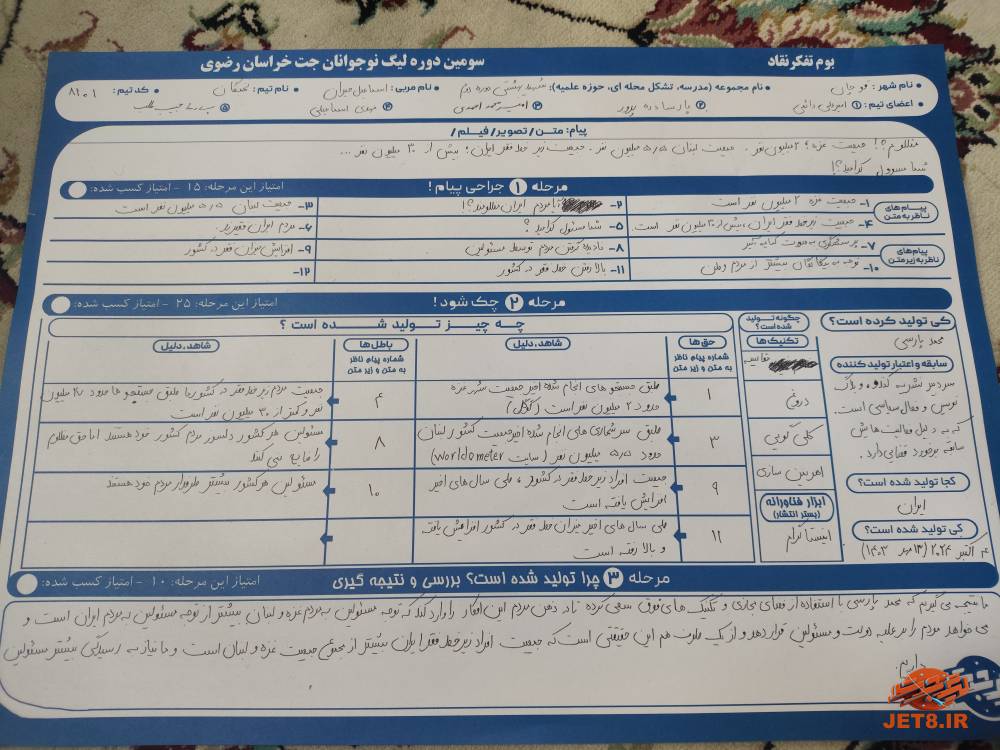 بوم تفکر نقاد
سومین دوره لیگ نوجوانان جت خراسان رضوی
• نام شهر: قوچان • نام مجموعه (مدرسه، تشکل محله ای، حوزه علمیه): شهید بهشتی دوره دوم • نام مربی: اسماعیل • نام تیم: نخبگان • کد تیم: ۸۱۰۱
• اعضای تیم: ۱ امیرعلی ۲ پارسا ۳ امیرمحمد احمدی ۴ مهدی اسماعیلی ۵
پیام: متن/ تصویر/ فیلم/
مظلوم؟! جمعیت غزه؛ ۲ میلیون نفر. جمعیت لبنان ۵/۵ میلیون نفر. جمعیت زیر خط فقر ایران؛ بیش از ۳۰ میلیون نفر ...
شما مسوول کدامید؟!
مرحله ۱ جراحی پیام!
امتیاز این مرحله: ۱۵ - امتیاز کسب شده:
پیام‌های ناظر به متن
۱- جمعیت غزه ۲ میلیون نفر است
۲- آیا مردم ایران مظلومند؟!
۳- جمعیت لبنان ۵/۵ میلیون نفر است
۴- جمعیت زیر خط فقر ایران، بیش از ۳۰ میلیون نفر است.
۵- شما مسئول کدامید؟
۶- مردم ایران فقیرند.
پیام‌های ناظر به زیر متن
۷- پرسشگری به صورت کنایه آمیز
۸- نادیده گرفتن مردم توسط مسئولین
۹- افزایش میزان فقر در کشور
۱۰- توجه به بیگانگان بیشتر از مردم وطن
۱۱- بالا رفتن خط فقر در کشور
۱۲-
مرحله ۲ چک شود!
امتیاز این مرحله: ۲۵ - امتیاز کسب شده:
کی تولید کرده است؟
محمد پارسی
سابقه و اعتبار تولید کننده
سردبیر نشریه کندو، وبلاگ
نویس و فعال سیاسی است.
که به دلیل فعالیت هایش
سابقه برخورد قضایی دارد.
کجا تولید شده است؟
ایران
کی تولید شده است؟
۴ اکتبر ۲۰۲۴ (۱۳ مهر ۱۴۰۳)
چگونه تولید شده است؟
تکنیک‌ها
دروغ
کلی گویی
اهریمن سازی
ابزار فناورانه (بستر انتشار)
اینستاگرام
چه چیز تولید شده است؟
حق‌ها
شماره پیام ناظر به متن و زیر متن
شاهد، دلیل
باطل‌ها
شماره پیام ناظر به متن و زیر متن
شاهد، دلیل
۱
طبق جستجو های انجام شده اخیر جمعیت شهر غزه
حدود ۲ میلیون نفر است (گوگل)
۳
طبق سرشماری های انجام شده اخیر جمعیت کشور لبنان
حدود ۵/۵ میلیون نفر (سایت worldometer)
۹
جمعیت افراد زیر خط فقر در کشور، طی سال های اخیر
افزایش یافته است
۱۱
طی سال های اخیر میزان خط فقر در کشور افزایش یافته
و بالا رفته است
۴
جمعیت مردم زیر خط فقر در کشور ما طبق جستجو ها حدود میلیون
نفر و کمتر از ۳۰ میلیون نفر است
۸
مسئولین هر کشور دلسوز مردم کشور خود هستند اما حق مظلوم
را ضایع نمی کنند
۱۰
مسئولین هر کشور بیشتر طرفدار مردم خود هستند
مرحله ۳ چرا تولید شده است؟ بررسی و نتیجه گیری
امتیاز این مرحله: ۱۰ - امتیاز کسب شده:
ما نتیجه می گیریم که محمد پارسی با استفاده از فضای مجازی و تکنیک های فوق سعی کرده تا در ذهن مردم این افکار را وارد کند که توجه مسئولین به مردم غزه و لبنان بیشتر از توجه مسئولین به مردم ایران است و
می خواهد مردم را بر علیه دولت و مسئولین قرار دهد و از یک طرف هم این حقیقتی است که جمعیت افراد زیر خط فقر ایران بیشتر از مجموع جمعیت غزه و لبنان است و ما نیاز به رسیدگی بیشتر مسئولین
داریم.
JET8.IR